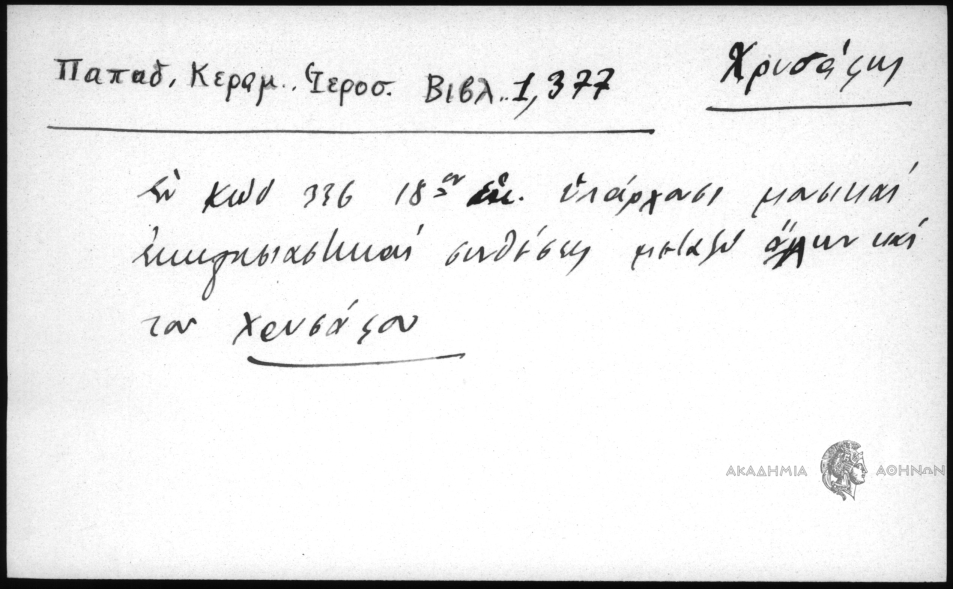 Παπαδ. Κεραμ. Ἱεροσ. Βιβλ. 1,377
Χρυσάφης
Ἐν κώδ 336 18ου αἰ. ὑπάρχουσι μουσικαί
ἐκκλησιαστικαί συνθέσεις μεταξύ ἄλλων καί
του Χρυσάφου
ΑΚΑΔΗΜΙΑ ΑΘΗΝΩΝ